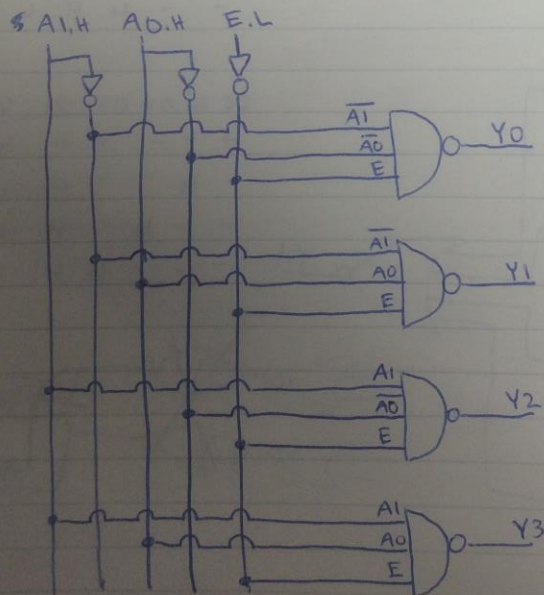 A1.H A0.H E.L
A̅1̅
A̅0̅
E
Y0
A̅1̅
A0
E
Y1
A1
A̅0̅
E
Y2
A1
A0
E
Y3